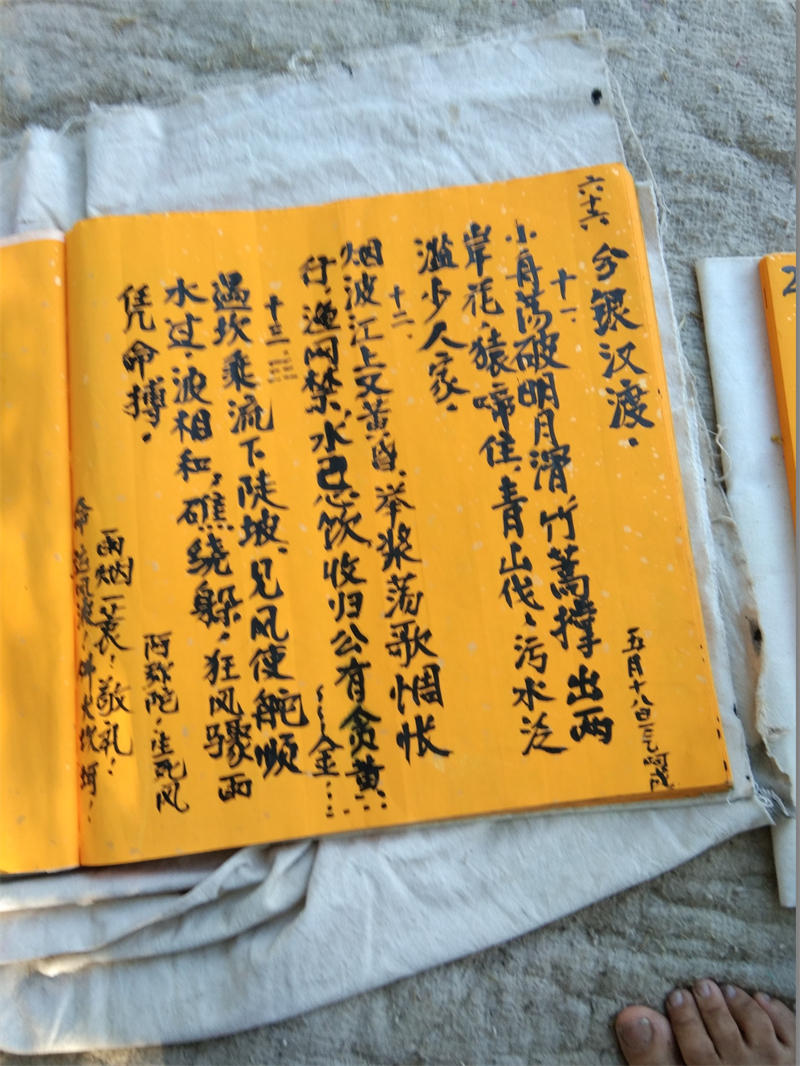 六十六 今银汉渡。
五月十八日
十一、
小舟荡破明月滑竹篙撑出两
岸花。猿啼住、青山伐、污水泛
滥少人家。
十二、
烟波江上又黄昏、举浆荡歌惆怅
行。渔网禁、水已忌饮收归公有贪黄
金……
十三……
遇坎乘流下陡坡、见风使舵顺
水过。波相和、礁绕躲。狂风骤雨
凭命搏。
阿弥陀。生死风
雨烟一蓑！敬礼！